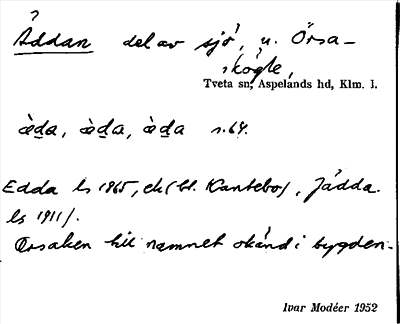 Åddan del av sjö, u. Örsa-
skögle,
Tveta sn, Aspelands hd, Klm. l.
àḍa, àḍa, àḍa s. 64.
Edda ls 1965, ek (bl. Kantebo), Jädda
ls 1911).
Orsaken till namnet okänd i bygden.
Ivar Modéer 1952